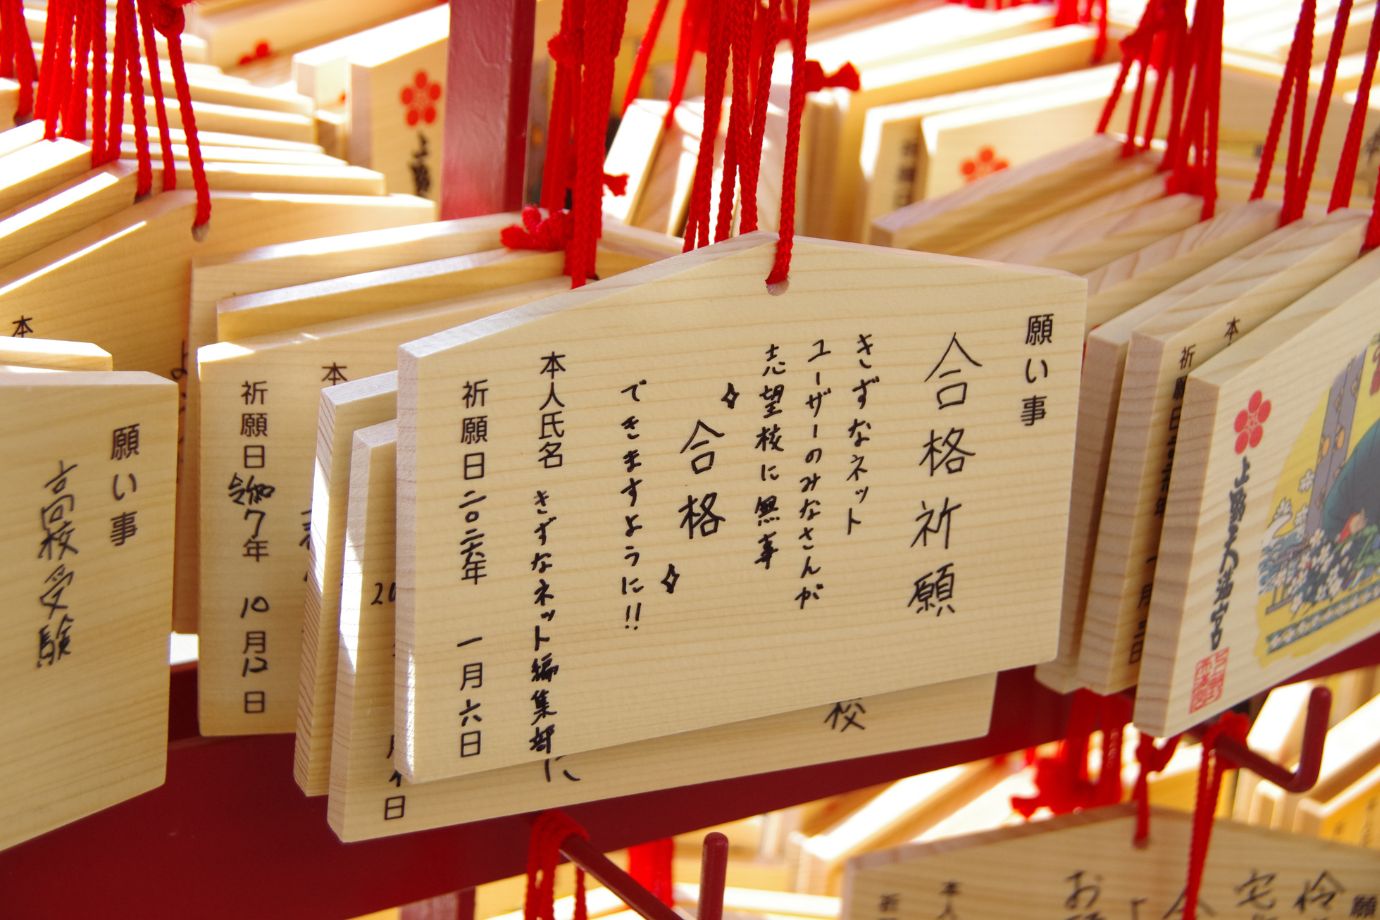 願い事
合格祈願
きずなネット
ユーザーのみなさんが
志望校に無事
合格
できますように!!
本人氏名 きずなネット編集部
祈願日 二〇二六年 一月六日
願い事
高校受験
本
祈願日 令和7年 10月12日
校
20
日
上野天満宮
本
祈願日
本人
祈
願